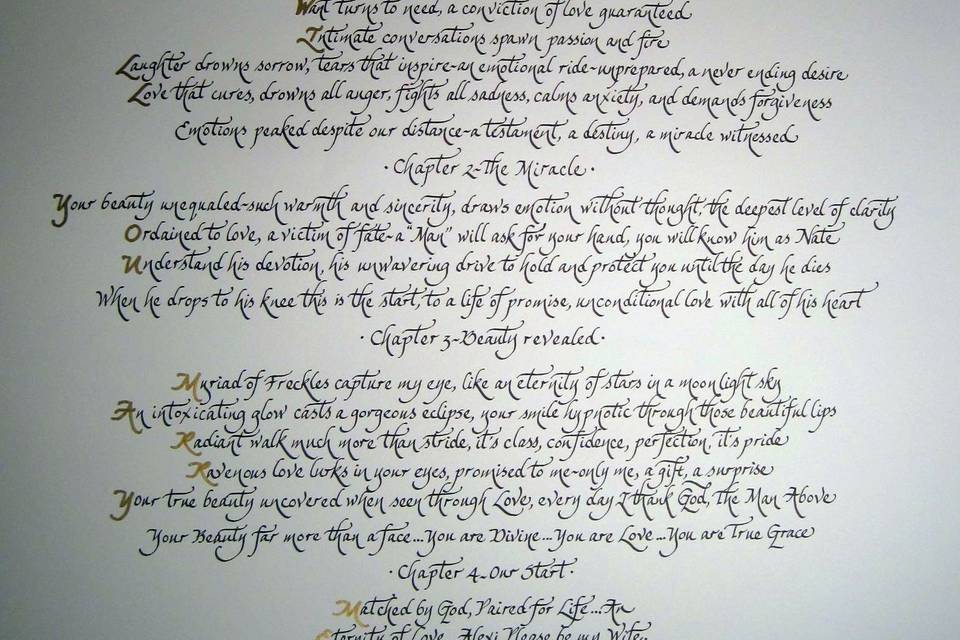 Want turns to need, a conviction of love guaranteed
Intimate conversations spawn passion and fire
Laughter drowns sorrow, tears that inspire~an emotional ride~unprepared, a never ending desire
Love that cures, drowns all anger, fights all sadness, calms anxiety, and demands forgiveness
Emotions peaked despite our distance~a testament, a destiny, a miracle witnessed
·Chapter 2~The Miracle·
Your beauty unequaled~such warmth and sincerity, draws emotion without thought, the deepest level of clarity
Ordained to love, a victim of fate~a "Man" will ask for your hand, you will know him as Nate
Understand his devotion, his unwavering drive to hold and protect you until the day he dies
When he drops to his knee this is the start, to a life of promise, unconditional love with all of his heart
·Chapter 3~Beauty revealed·
Myriad of Freckles capture my eye, like an eternity of stars in a moonlight sky
An intoxicating glow casts a gorgeous eclipse, your smile hypnotic through those beautiful lips
Radiant walk much more than stride, it's class, confidence, perfection, it's pride
Ravenous love lurks in your eyes, promised to me~only me, a gift, a surprise
Your true beauty uncovered when seen through Love, every day I thank God, the Man Above
Your Beauty far more than a face...You are Divine...You are Love...You are True Grace
·Chapter 4~Our Start·
Matched by God, Paired for Life...An
Eternity of Love...Alexi Please be my Wife..